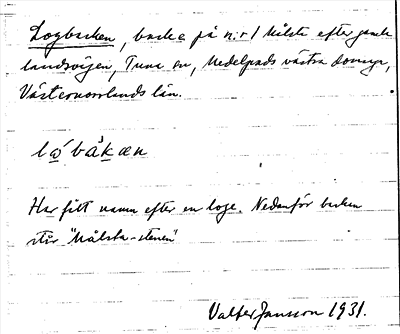 Logbacken, backe på n:r 1 Målsta efter gamla
landsvägen, Tuna sn, Medelpads västra domsaga,
Västernorrlands län.
lǫ̀băkæn
Har fått namn efter en loge. Nedanför backen
står "Målsta-stenen"
Valter Jansson 1931.